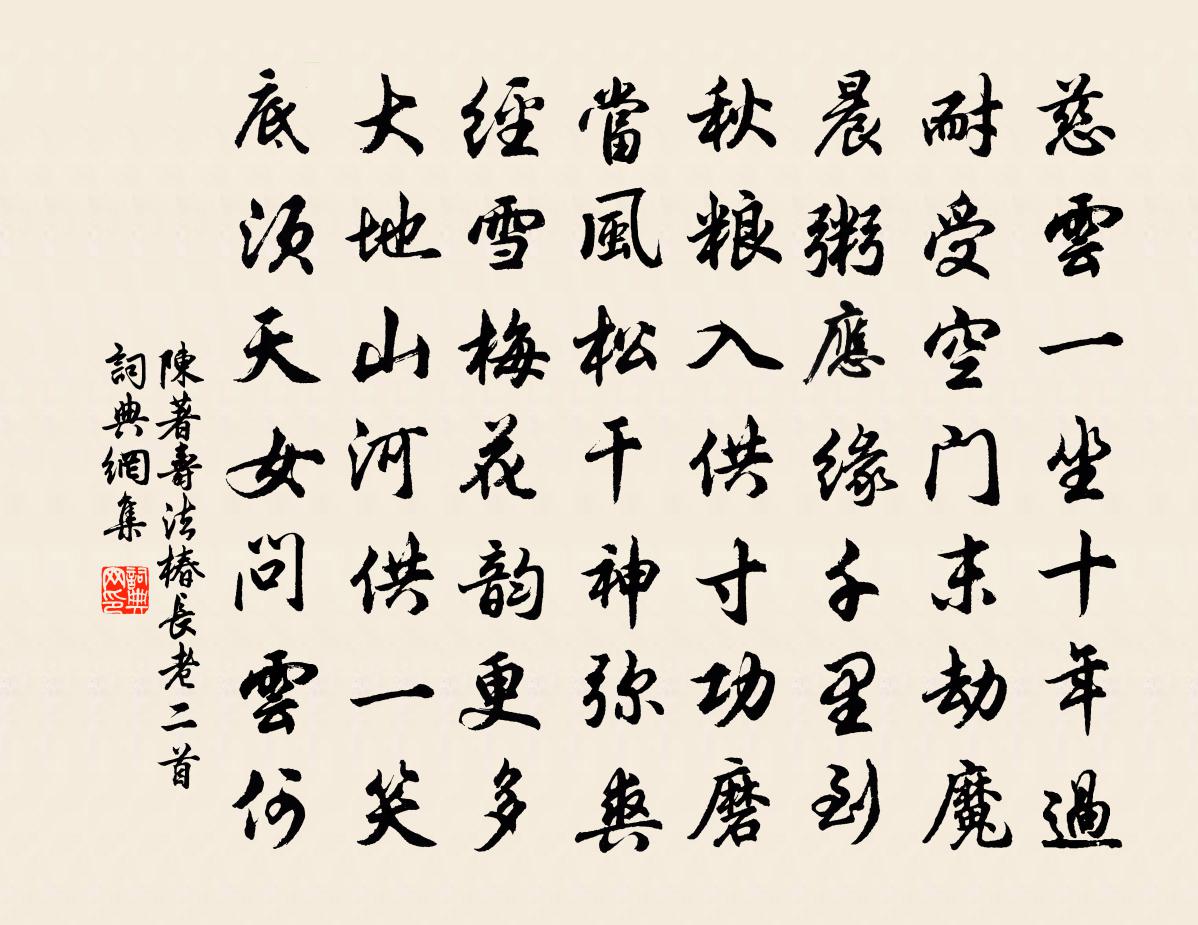 慈雲一坐十年過
耐受空门末劫魔
晨粥應缘千里到
秋粮入供寸功磨
當風松干神弥爽
經雪梅花韵更多
大地山河供一笑
底须天女问雲何
陳著壽法椿長老二首
詞典網集